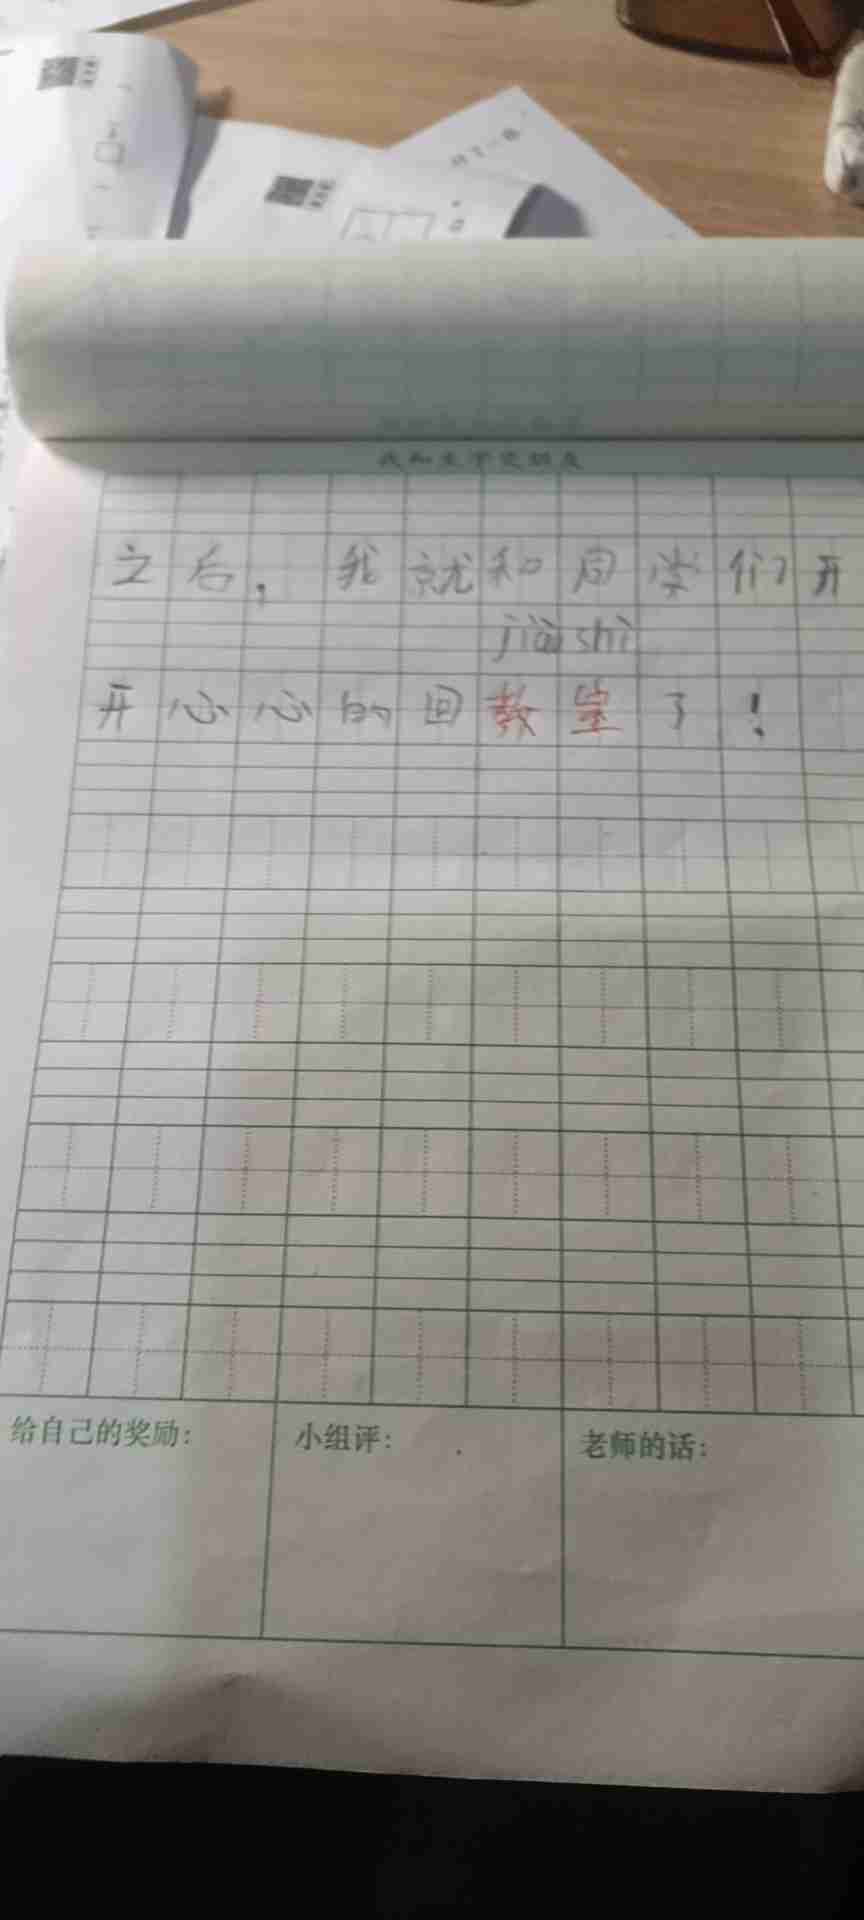 我和文字交朋友
之后，我就和同学们开
jiào shì
开心心的回教室了！
给自己的奖励：
小组评：
老师的话：